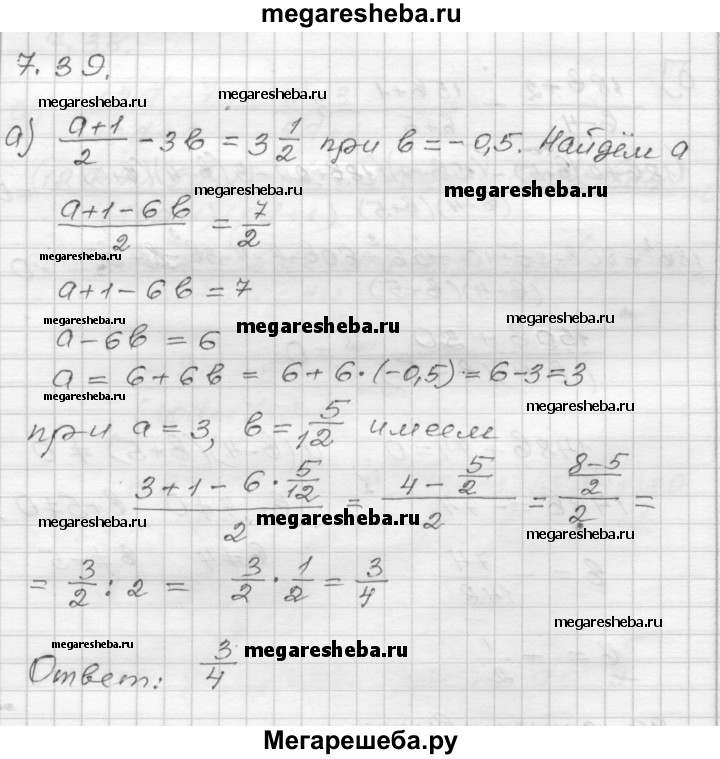 megaresheba.ru
7.39.
megaresheba.ru megaresheba.ru
а) (a+1)/2 - 3в = 3 1/2 при в = -0,5. Найдём а
megaresheba.ru megaresheba.ru
(a+1-6в)/2 = 7/2
megaresheba.ru
a+1-6в = 7
megaresheba.ru megaresheba.ru megaresheba.ru
a-6в = 6
a = 6+6в = 6+6·(-0,5) = 6-3=3
megaresheba.ru megaresheba.ru
при a = 3, в = 5/12 имеем
(3+1-6·5/12)/2 = (4-5/2)/2 = ((8-5)/2)/2 =
megaresheba.ru megaresheba.ru megaresheba.ru
= 3/2 : 2 = 3/2 · 1/2 = 3/4
megaresheba.ru
megaresheba.ru megaresheba.ru
Ответ: 3/4
Мегарешеба.ру